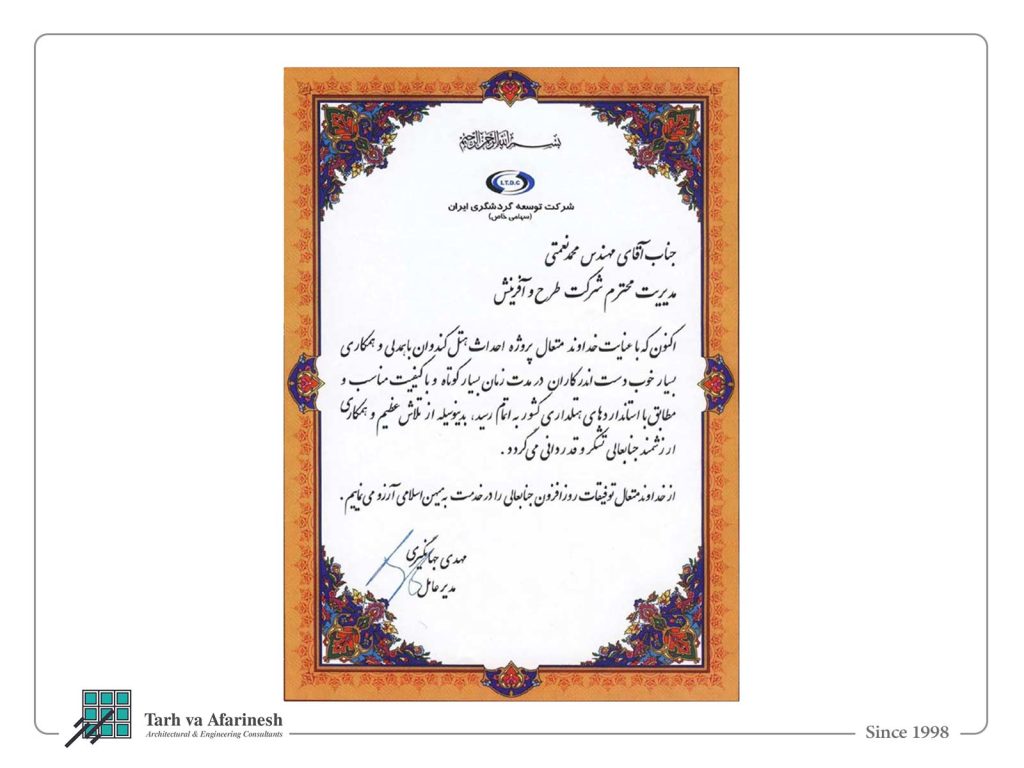 بسم الله الرحمن الرحیم
I.T.D.C
شرکت توسعه گردشگری ایران
(سهامی خاص)
جناب آقای مهندس محمد نعمتی
مدیریت محترم شرکت طرح و آفرینش
اکنون که با عنایت خداوند متعال پروژه احداث هتل کندوان با همدلی و همکاری
بسیار خوب دست اندرکاران در مدت زمان بسیار کوتاه و با کیفیت مناسب و
مطابق با استانداردهای هتلداری کشور به اتمام رسید، بدینوسیله از تلاش عظیم و همکاری
ارزشمند جنابعالی تشکر و قدردانی می گردد.
از خداوند متعال توفیقات روزافزون جنابعالی را در خدمت به میهن اسلامی آرزو می نماییم.
مهدی جهانگیری
مدیر عامل
Tarh va Afarinesh
Architectural & Engineering Consultants
Since 1998